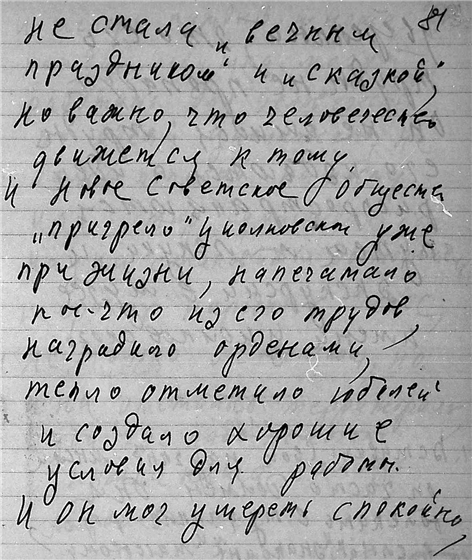 81
не стала „вечным
праздником“ и „сказкой“,
но важно, что человечество
движется к тому.
И новое Советское Общество
„пригрело“ Циолковского уже
при жизни, напечатало
кое-что из его трудов,
наградило орденами,
тепло отметило юбилей
и создало хорошие
условия для работы.
И он мог умереть спокойно,